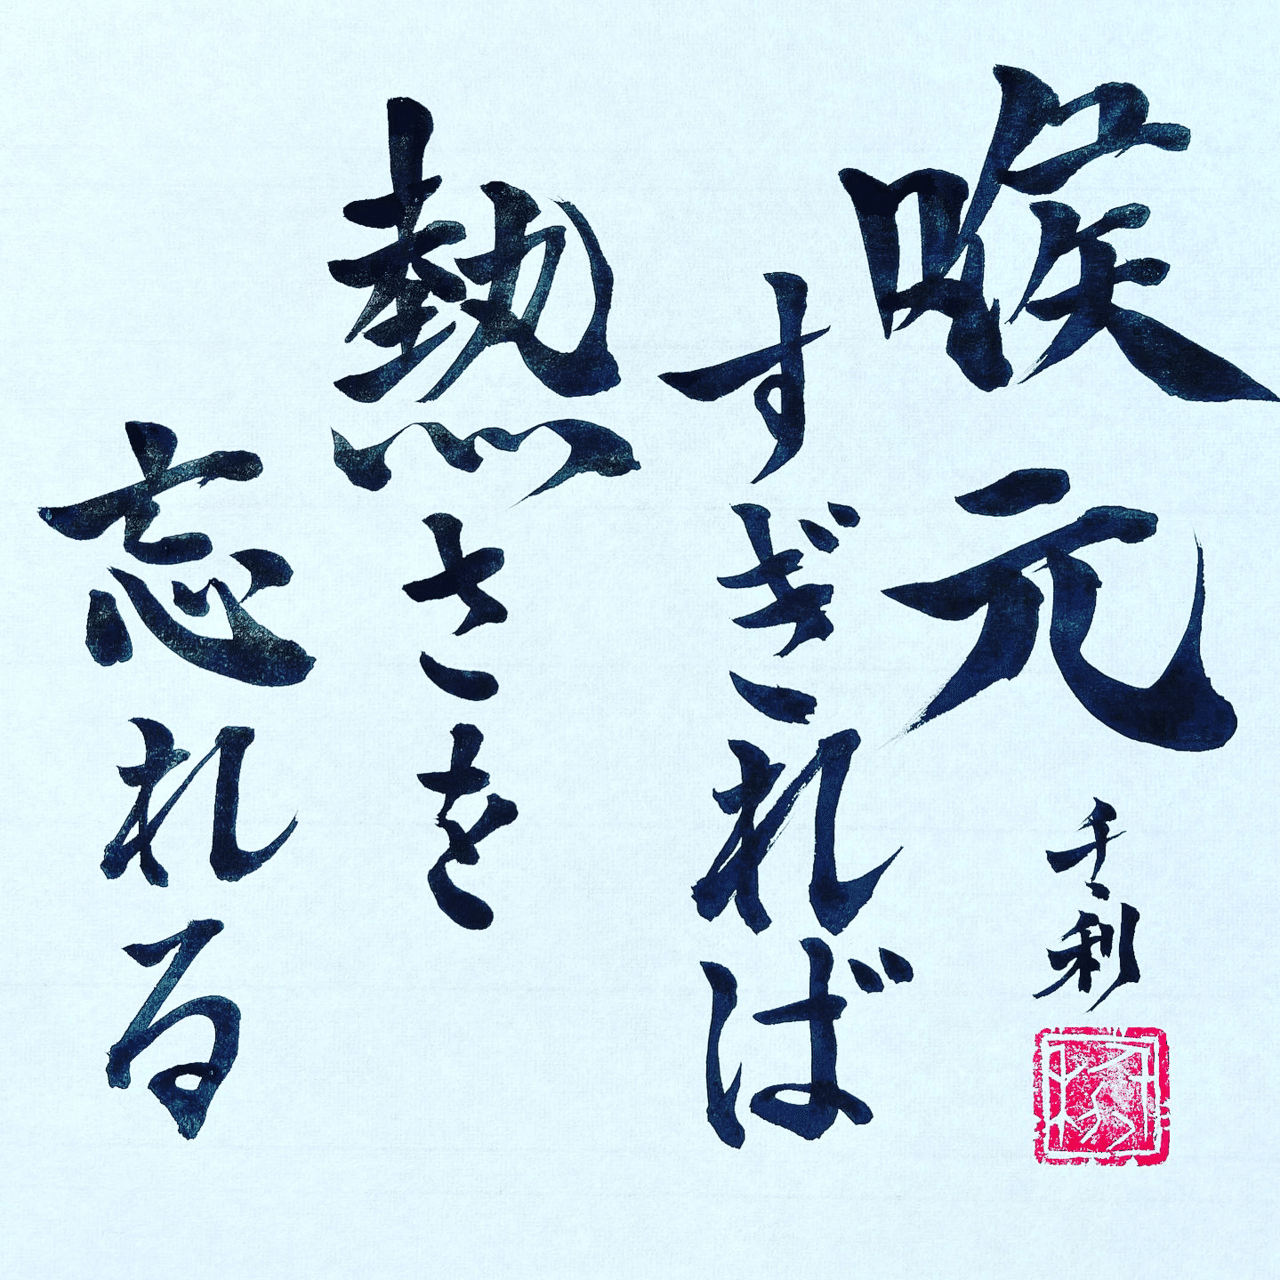 喉元
すぎれば
熱さを
忘れる
千利